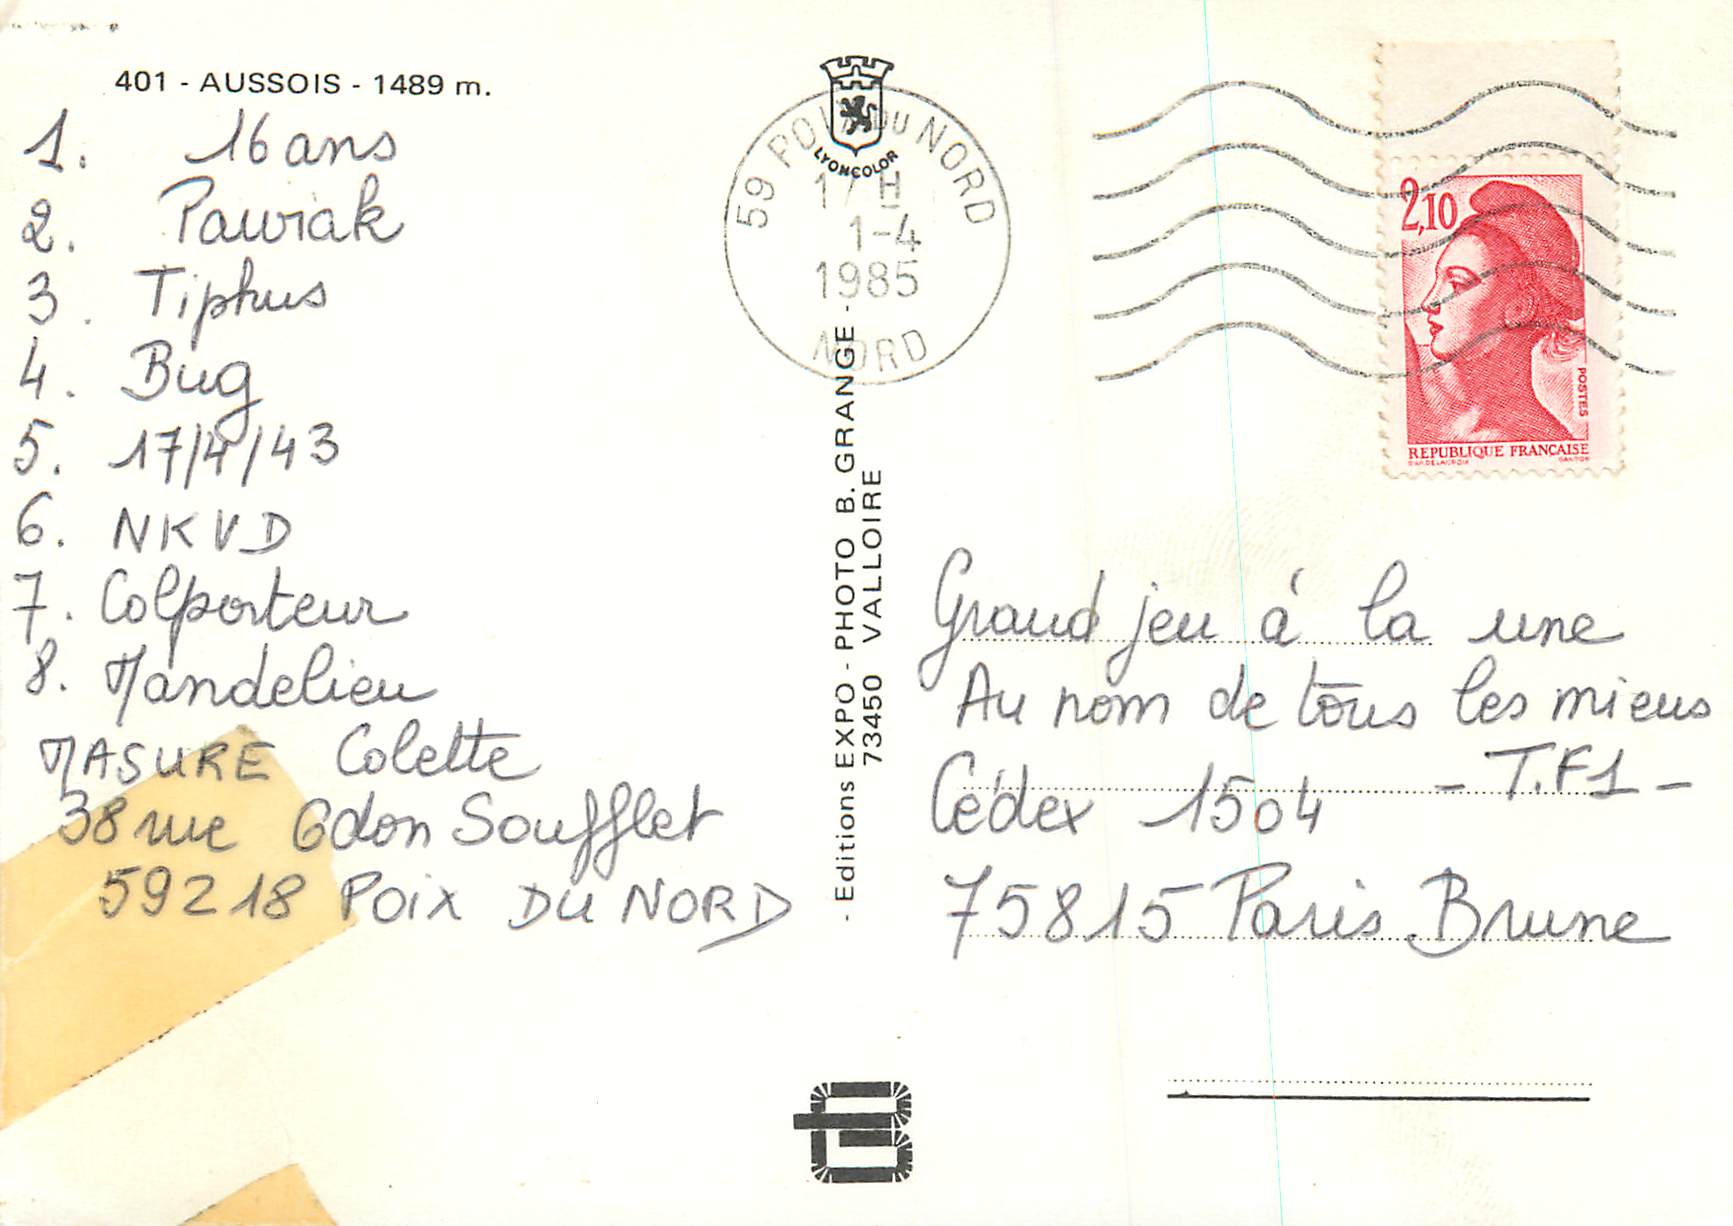 401 - AUSSOIS - 1489 m.
1. 16 ans
2. Pawiak
3. Tiphus
4. Bug
5. 17/4/43
6. NKVD
7. Colporteur
8. Mandelieu
MASURE Colette
38 rue Odon Soufflet
59218 POIX DU NORD
LYONCOLOR
59 POIX DU NORD
17 H
1-4
1985
NORD
- Editions EXPO - PHOTO B. GRANGE -
73450 VALLOIRE
2,10
POSTES
REPUBLIQUE FRANÇAISE
Grand jeu à la une
Au nom de tous les miens
- T.F1 -
Cédex 1504
75815 Paris Brune